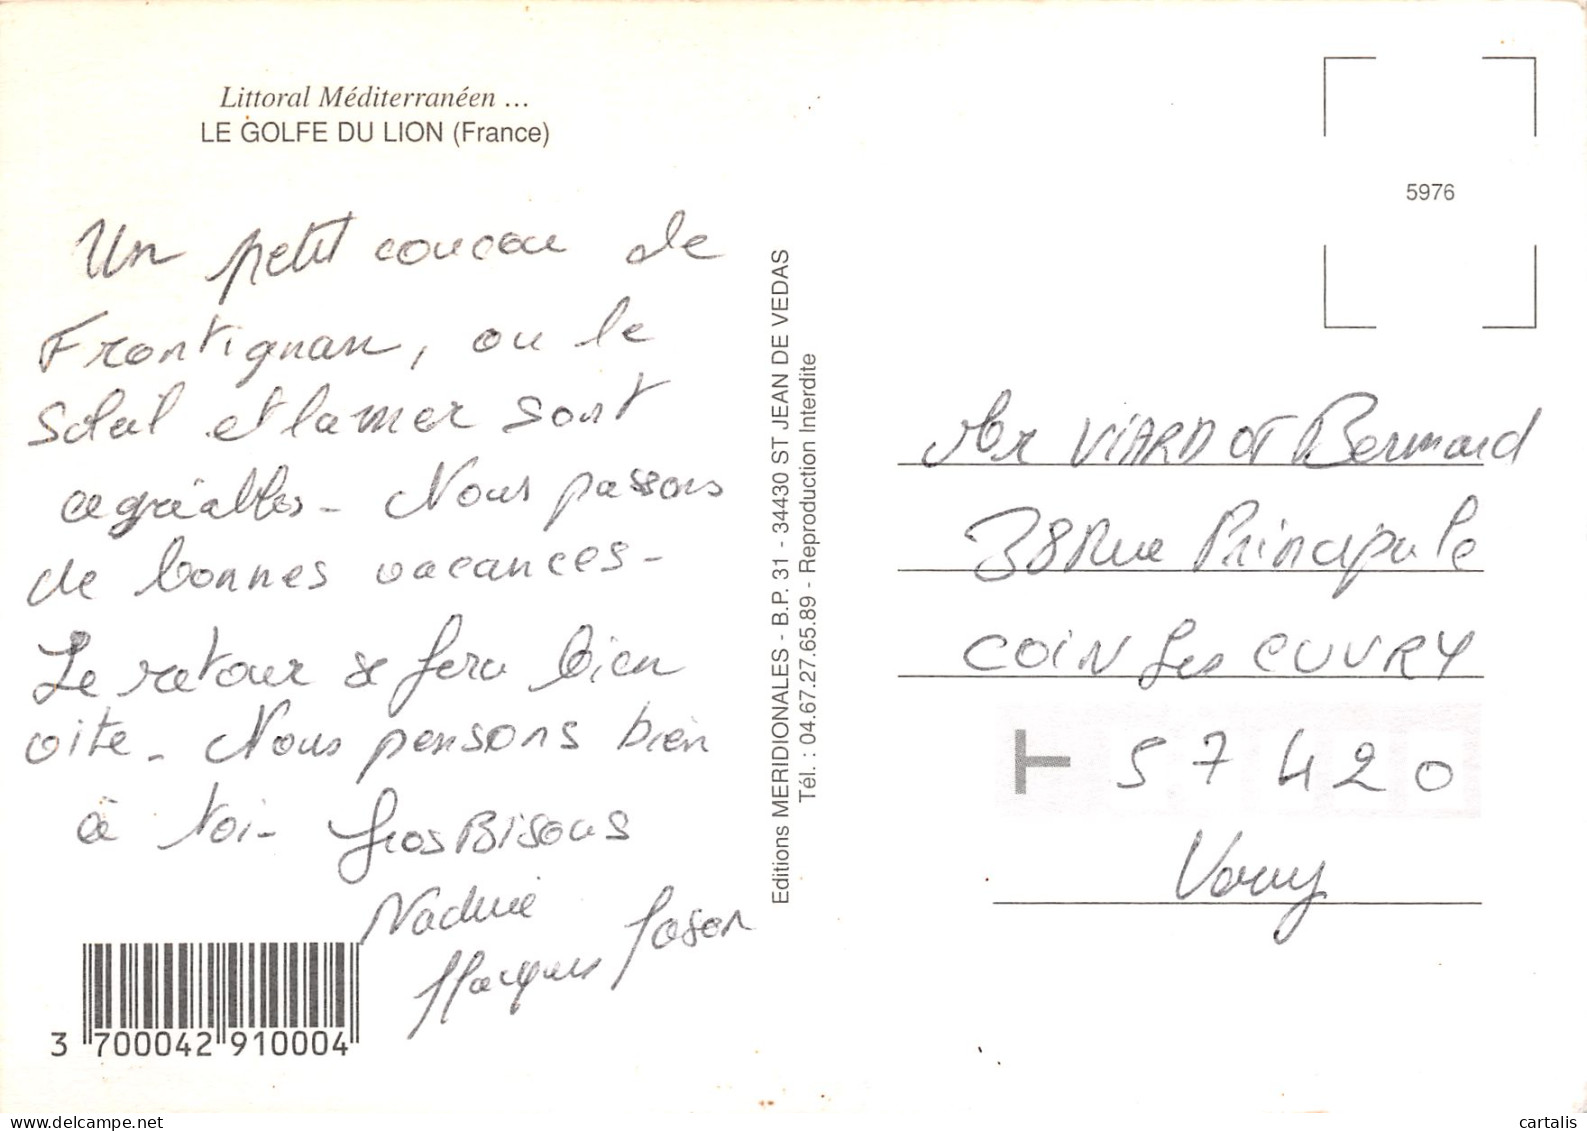 Littoral Méditerranéen ...
LE GOLFE DU LION (France)
Un petit coucou de
Frontignan, ou le
Soleil et la mer sont
agréables - Nous passons
de bonnes vacances -
Le retour se fera bien
vite - Nous pensons bien
à toi - Gros Bisous
Nadine
Jacques Jason
3 700042 910004
Editions MERIDIONALES - B.P. 31 - 34430 ST JEAN DE VEDAS
Tél. : 04.67.27.65.89 - Reproduction Interdite
5976
Mr VIARDOT Bernard
38 Rue Principale
COIN les CUVRY
57420
Verny
delcampe.net
cartalis